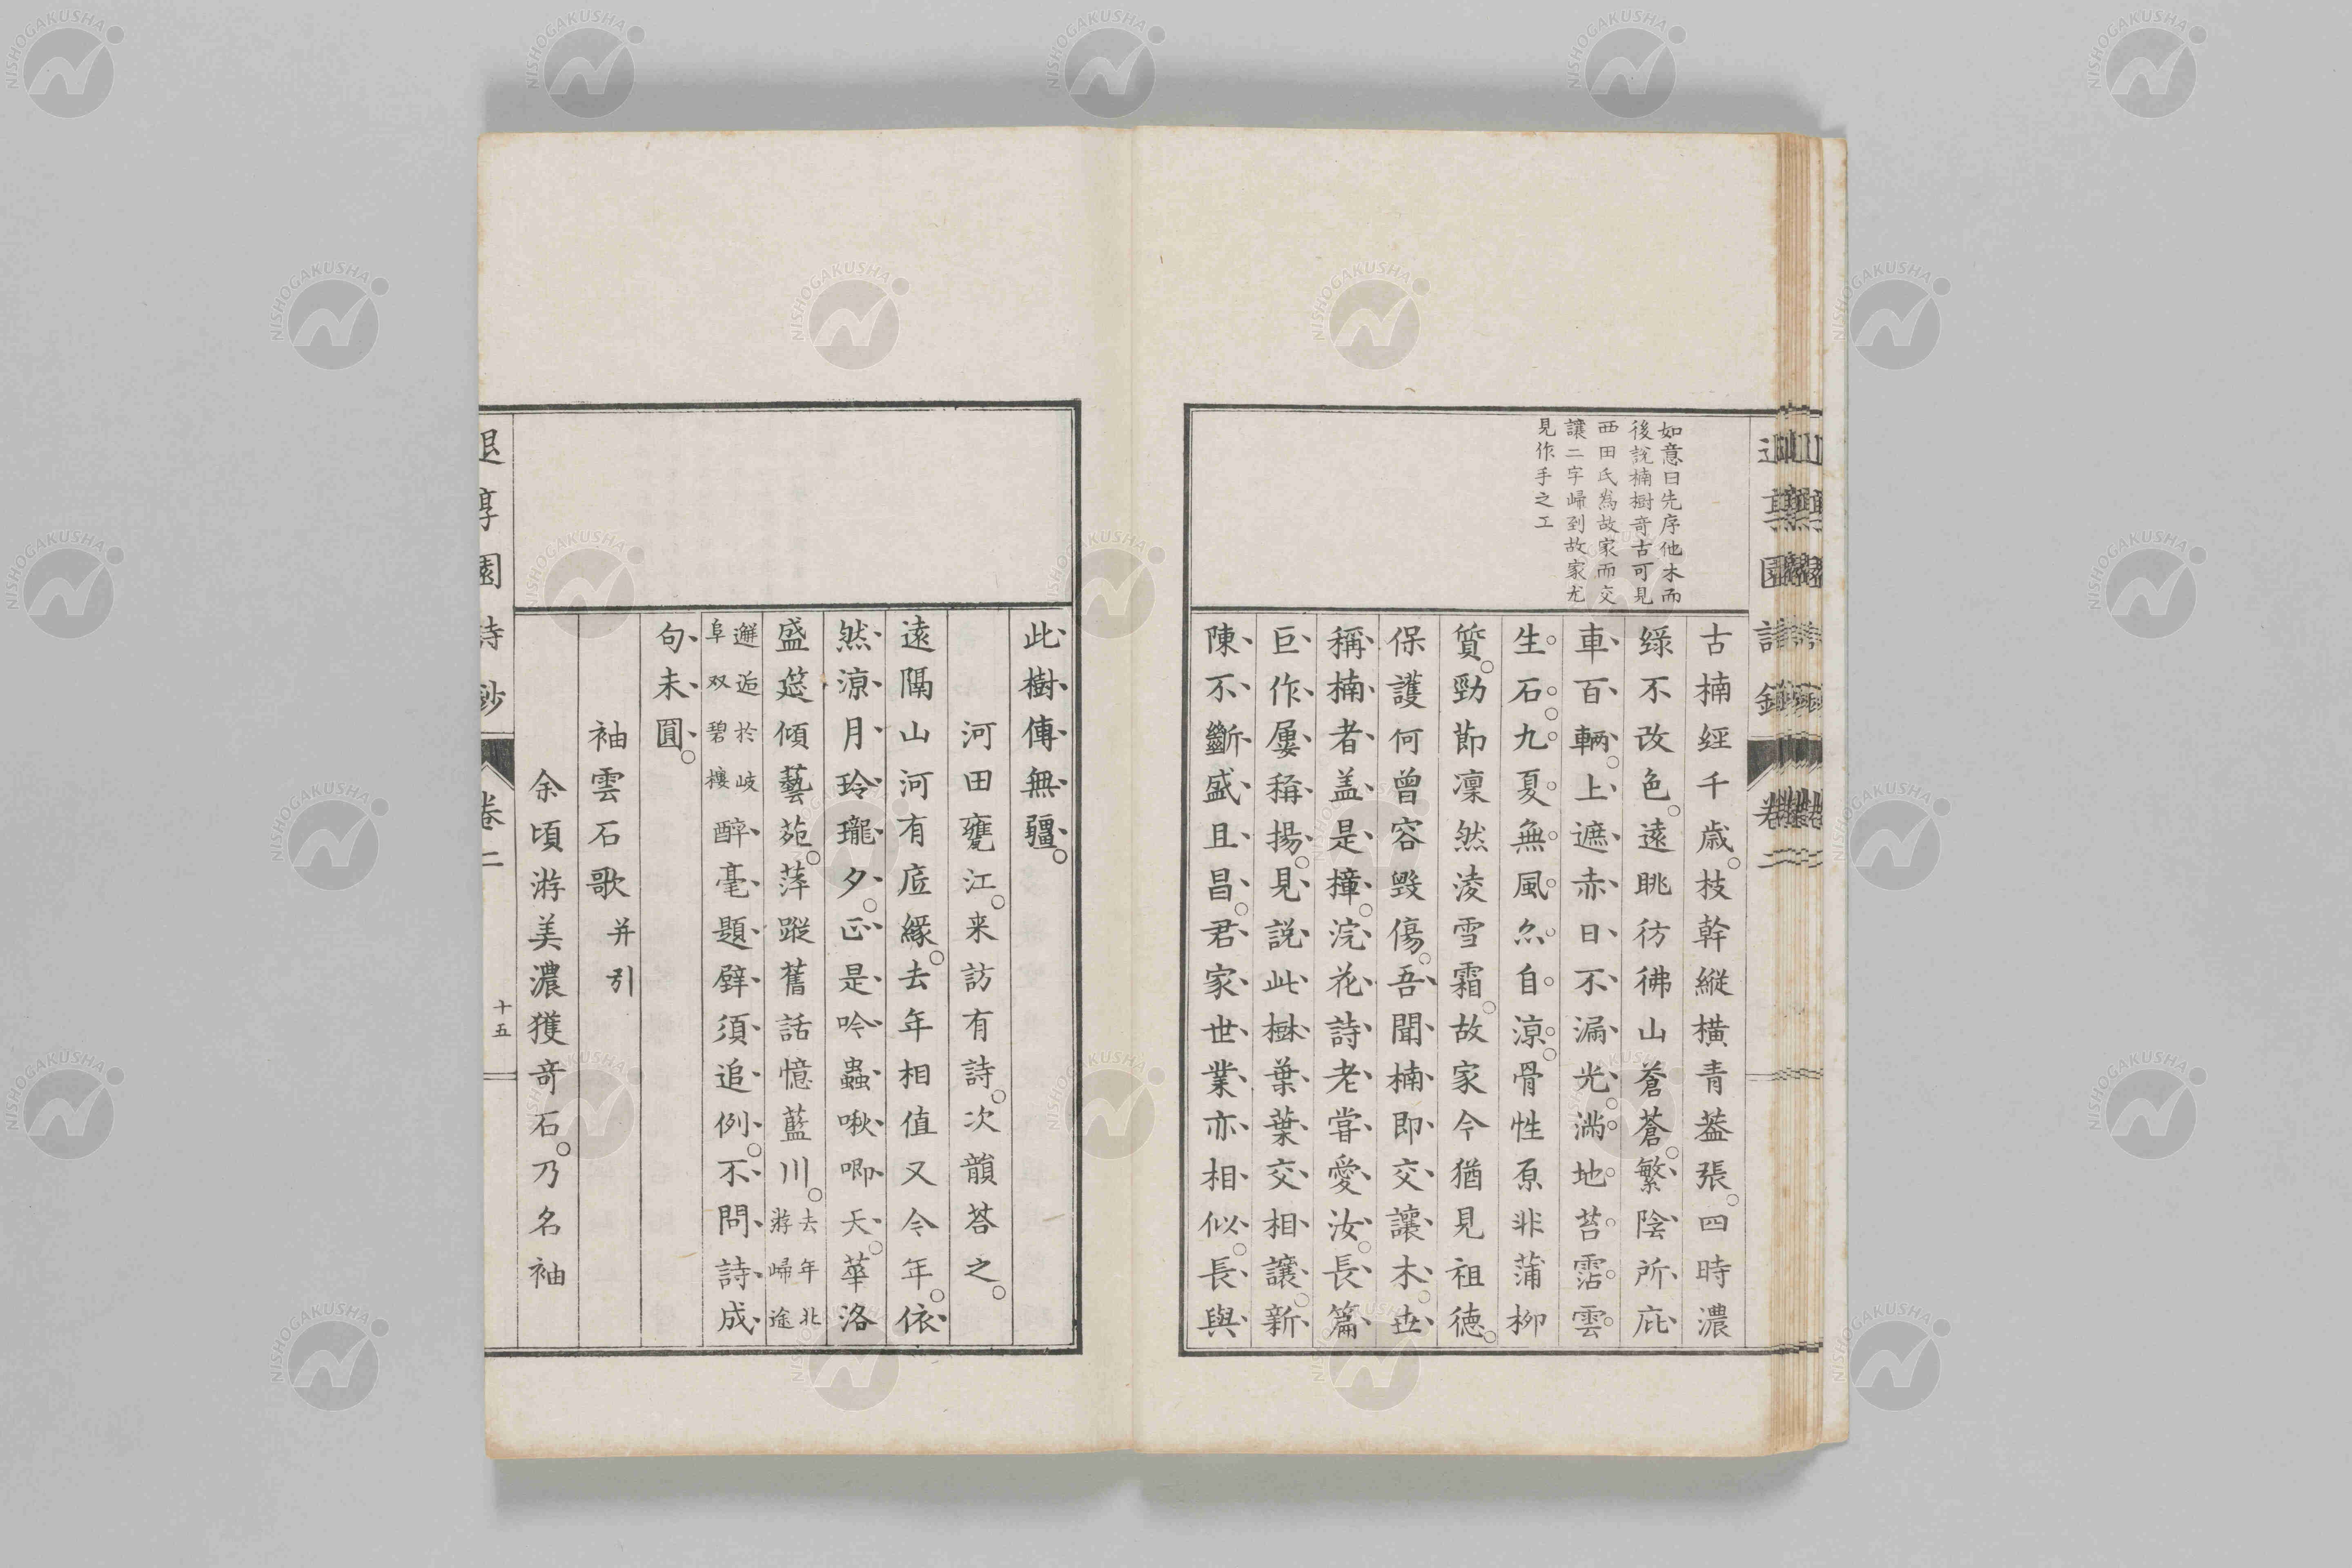 如意曰先序他木而
後說楠樹奇古可見
西田氏為故家而交
讓二字歸到故家尤
見作手之工
古楠經千歲。枝幹縱橫青葢張。四時濃
綠不改色。遠眺彷彿山蒼蒼。繁陰所庇
車百輛。上遮赤日不漏光。滿地苔霑雲
生石。九夏無風亦自涼。骨性原非蒲柳
質。勁節凜然淩雪霜。故家今猶見祖德。
保護何曾容毀傷。吾聞楠即交讓木。世
稱楠者盖是樟。浣花詩老嘗愛汝。長篇
巨作屢稱揚。見說此樹葉葉交相讓。新
陳不斷盛且昌。君家世業亦相似。長與
此樹傳無疆。
河田甕江。来訪有詩。次韻荅之。
遠隔山河有底緣。去年相值又今年。依
然涼月玲瓏夕。正是吟蟲啾唧天。華洛
盛筵傾藝苑。萍蹤舊話憶藍川。去年北
游歸途
邂逅於岐
阜双碧樓醉毫題壁須追例。不問詩成
句未圓。
袖雲石歌并引
余頃游美濃獲奇石。乃名袖
退享園詩鈔 卷二 十五
NISHOGAKUSHA